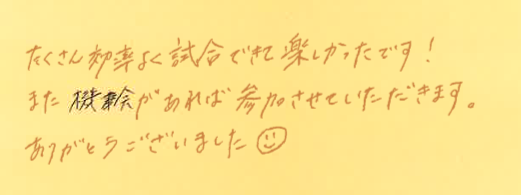 たくさん効率よく試合できて楽しかったです!
また機会があれば参加させていただきます。
ありがとうございました